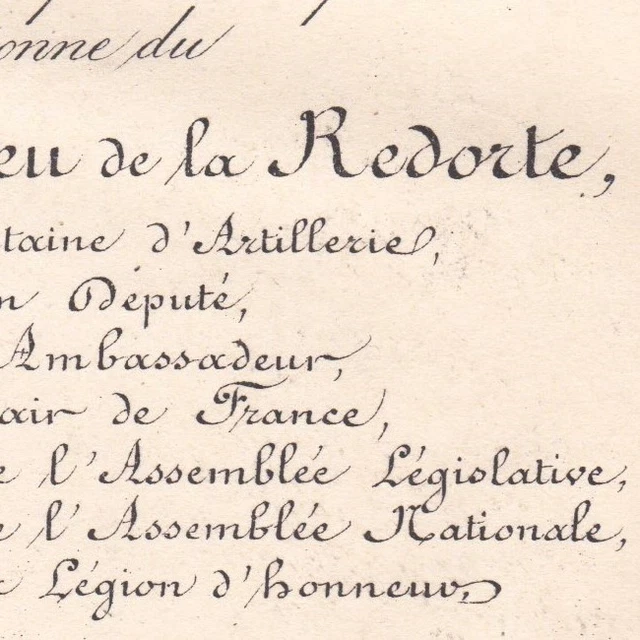 onne du
eu de la Redorte,
taine d'Artillerie,
n Député,
Ambassadeur,
air de France,
e l'Assemblée Législative,
e l'Assemblée Nationale,
Légion d'honneur,